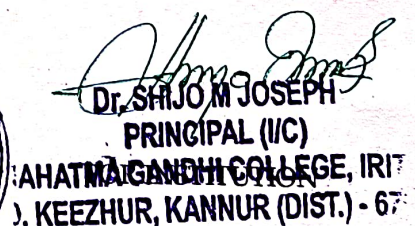 Dr. SHIJO M JOSEPH
PRINCIPAL (I/C)
AHATMAGANDHI COLLEGE, IRIT
. KEEZHUR, KANNUR (DIST.) - 67